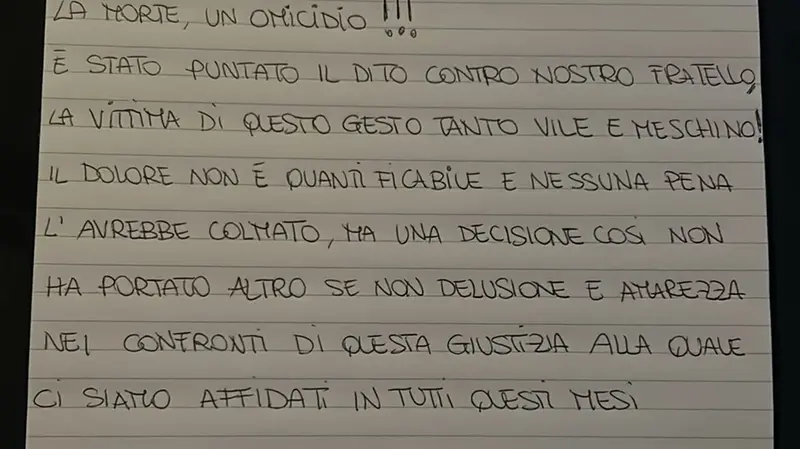 LA MORTE, UN OMICIDIO !!!
È STATO PUNTATO IL DITO CONTRO NOSTRO FRATELLO,
LA VITTIMA DI QUESTO GESTO TANTO VILE E MESCHINO!
IL DOLORE NON È QUANTIFICABILE E NESSUNA PENA
L'AVREBBE COLMATO, MA UNA DECISIONE COSÌ NON
HA PORTATO ALTRO SE NON DELUSIONE E AMAREZZA
NEI CONFRONTI DI QUESTA GIUSTIZIA ALLA QUALE
CI SIAMO AFFIDATI IN TUTTI QUESTI MESI